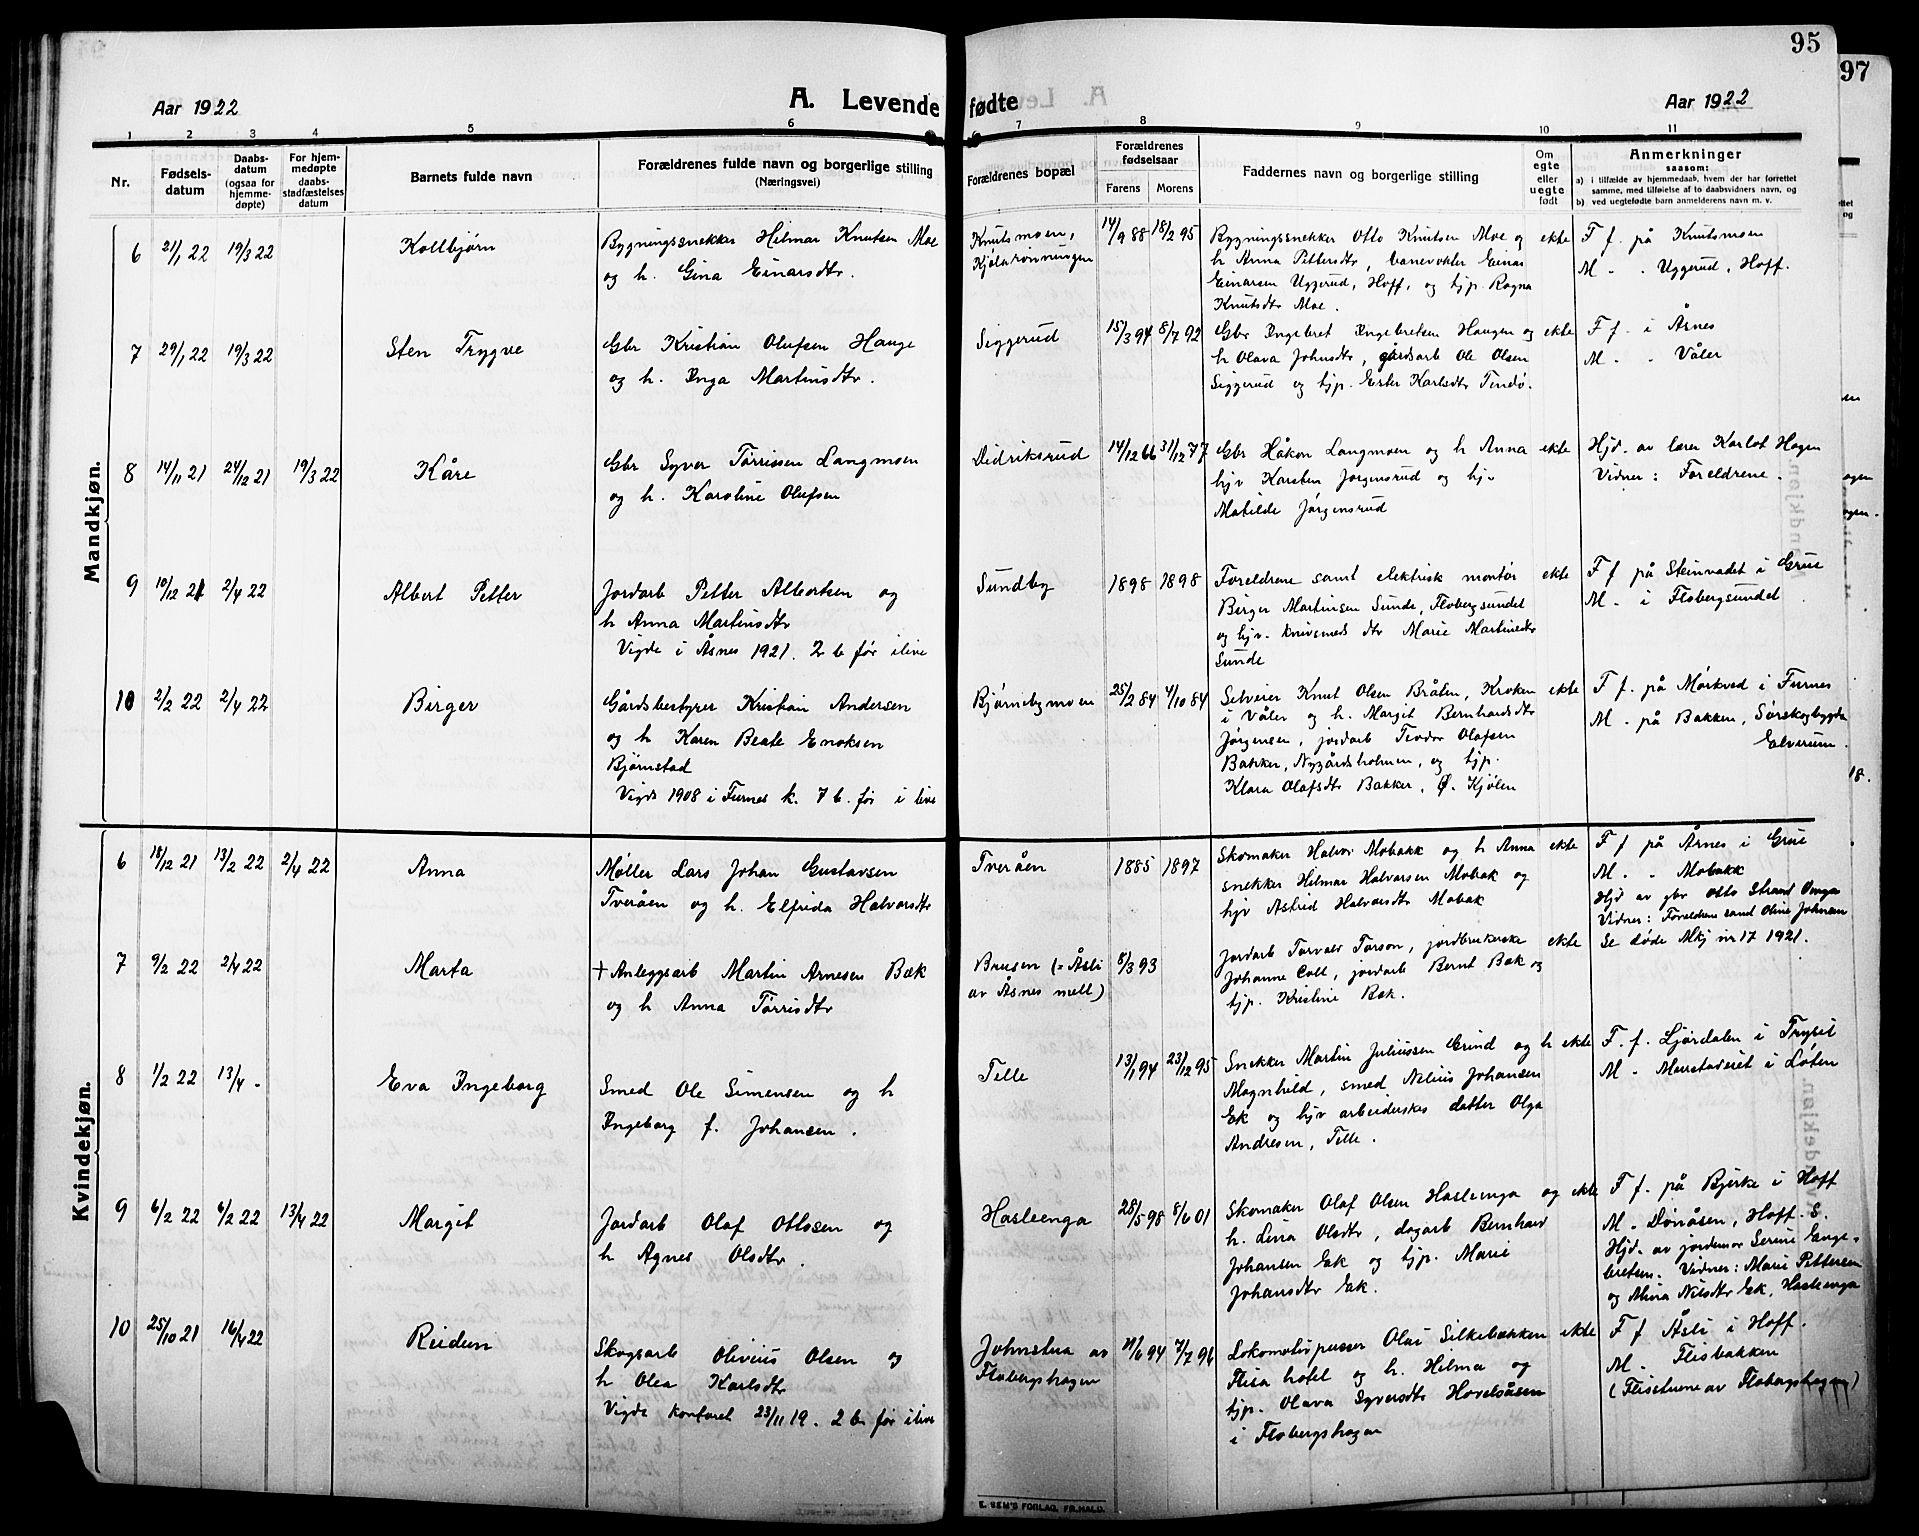 95
97
Aar 1922
A. Levende fødte
Aar 1922
1 2 3 4 5 6 7 8 9 10 11
Nr.
Fødsels-
datum
Daabs-
datum
(ogsaa for
hjemme-
døpte)
For hjem-
medøpte
daabs-
stadfæstelses
datum
Barnets fulde navn
Forældrenes fulde navn og borgerlige stilling
(Næringsvei)
Forældrenes bopæl
Forældrenes
fødselsaar
Farens Morens
Faddernes navn og borgerlige stilling
Om
egte
eller
uegte
født
Anmerkninger
saasom:
a) i tilfælde av hjemmedaab, hvem der har forrettet
samme, med tilføielse af to daabsvidners navn, og
b) ved uegtefødte barn anmelderens navn m. v.
Mandkjøn.
6 21/1 22 19/3 22 Kollbjørn
Bygningssnekker Hilmar Knutsen Moe
og h. Gina Einarsdtr.
Knutsmoen,
Kjølaronningen
14/9 88 18/2 95
Bygningssnekker Otto Knutsen Moe og ekte
h Anna Pettersdtr, banevokter Einar
Einarsen Uggerud, Hoff, og tjp. Ragna
Knutsdtr Moe.
F f. på Knutsmoen
M - - Uggerud, Hoff.
7 29/1 22 19/3 22 Sten Trygve
Gbr Kristian Olufsen Hauge
og h. Inga Martinsdtr.
Siggerud
15/3 94 8/7 92
Gbr Ingebret Ingebretsen Haugen og ekte
h Olava Johnsdtr, gårdsarb Ole Olsen
Siggerud og tjp. Ester Karlsdtr Tendø.
F f. i Åsnes
M - - Våler
8 14/11 21 24/12 21 19/3 22 Kåre
Gbr Syver Tørrissen Langmoen
og h. Karoline Olufsen
Didriksrud
14/12 66 31/12 77
Gbr Håkon Langmoen og h Anna ekte
hjv Karsten Jørgensrud og hjv
Matilde Jørgensrud
Hjd. av lærer Karlot Hagen
Vidner: Foreldrene.
9 10/12 21 2/4 22 Albert Petter
Jordarb Petter Albertsen og
h Anna Martinsdtr
Vigde i Åsnes 1921. 2 b før ilive
Sundby
1898 1898
Foreldrene samt elektrisk montør ekte
Birger Martinsen Sunde, Flobergsundet
og hjv. knivsmeds dtr Marie Martinsdtr
Sunde
F f på Steinvadet i Grue
M. - i Flobergsundet
10 2/2 22 2/4 22 Birger
Gårdsbestyrer Kristian Andersen
og h Karen Beate Enoksen
Bjørnstad
Vigde 1908 i Furnes k. 7 b. før i live
Bjørnebymoen
25/2 84 4/10 84
Selveier Knut Olsen Bråten, Kroken ekte
i Våler og h. Margit Bernhardsdtr
Jørgensen, jordarb Teodor Olafsen
Bakken, Nygårdsholmen, og tjp.
Klara Olafsdtr Bakker, Ø. Kjølen
F f. på Mørkved i Furnes
M - på Bakken, Sørskogbygda
Elverum.
Kvindekjøn.
6 18/12 21 13/2 22 2/4 22 Anna
Møller Lars Johan Gustavsen
Tveråen og h. Elfrida Halvorsdtr
Tveråen
1885 1897
Skomaker Halvor Mobakk og h Anna ekte
snekker Hilmar Halvorsen Mobak og
hjv Astrid Halvorsdtr Mobak
F f på Årnes i Grue
M. - - Mobakk
Hjd av gbr Otto Strand Omga
Vidner: Foreldrene samt Oline Johnsen
7 9/2 22 2/4 22 Marta
+ Anleggsarb Martin Arnesen Bæk
og h Anna Tørrisdtr
Brusen (= Åsli
av Åsnes mell)
8/3 93
Jordarb Torvald Torson, jordbrukerske ekte
Johanne Colt, jordarb Bernt Bæk og
tjp. Kristine Bæk.
Se døde Mkj nr 17 1921.
8 1/2 22 13/4 - Eva Ingeborg
Smed Ole Simensen og h
Ingeborg f. Johansen.
Telle
13/1 94 23/12 95
Snekker Martin Juliussen Grind og h ekte
Magnhild, smed Nelius Johansen
Ek og hjv arbeiderskes datter Olga
Andresen, Telle.
F. f. Ljørdalen i Trysil
M - i Løten
9 6/2 22 6/2 22 13/4 22 Margit
Jordarb Olaf Ottosen og
h Agnes Olsdtr.
Hasleenga
28/5 98 8/6 01
Skomaker Olaf Olsen Hasleenga og ekte
h. Lina Olsdtr, dagarb Bernhard
Johansen Ek og tjp. Marie
Johansdtr Ek.
F f. på Bjerke i Hoff
M. - Dønåsen, Hoff s.
Hjd. av jordemor Serine Enge-
bretsen. Vidner: Marie Pettersen
og Alina Nilsdtr Ek, Hasleenga
10 25/10 21 16/4 22 Reidun
Skogsarb Olivius Olsen og
h Olea Karlsdtr
Vigde kontoret 23/11 19. 2 b før ilive
Johnstua av
Flobergshagen
21/6 94 7/7 96
Lokomotivpusser Olai Silkebækken ekte
Flisa hotel og h. Hilma og
tjp. Olava Syversdtr Hovelsåsen
i Flobergshagen
F f Åsli i Hoff.
M. - Flisbakken
(Flisetuene av Flobergshagen)
E. SEM'S FORLAG, FR.HALD.